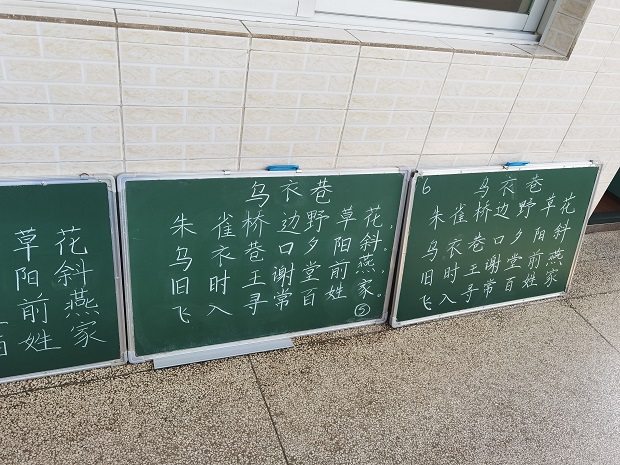 草花
阳斜
前燕
姓家
乌衣巷
朱雀桥边野草花，
乌衣巷口夕阳斜。
旧时王谢堂前燕，
飞入寻常百姓家。
⑤
6 乌衣巷
朱雀桥边野草花
乌衣巷口夕阳斜
旧时王谢堂前燕
飞入寻常百姓家